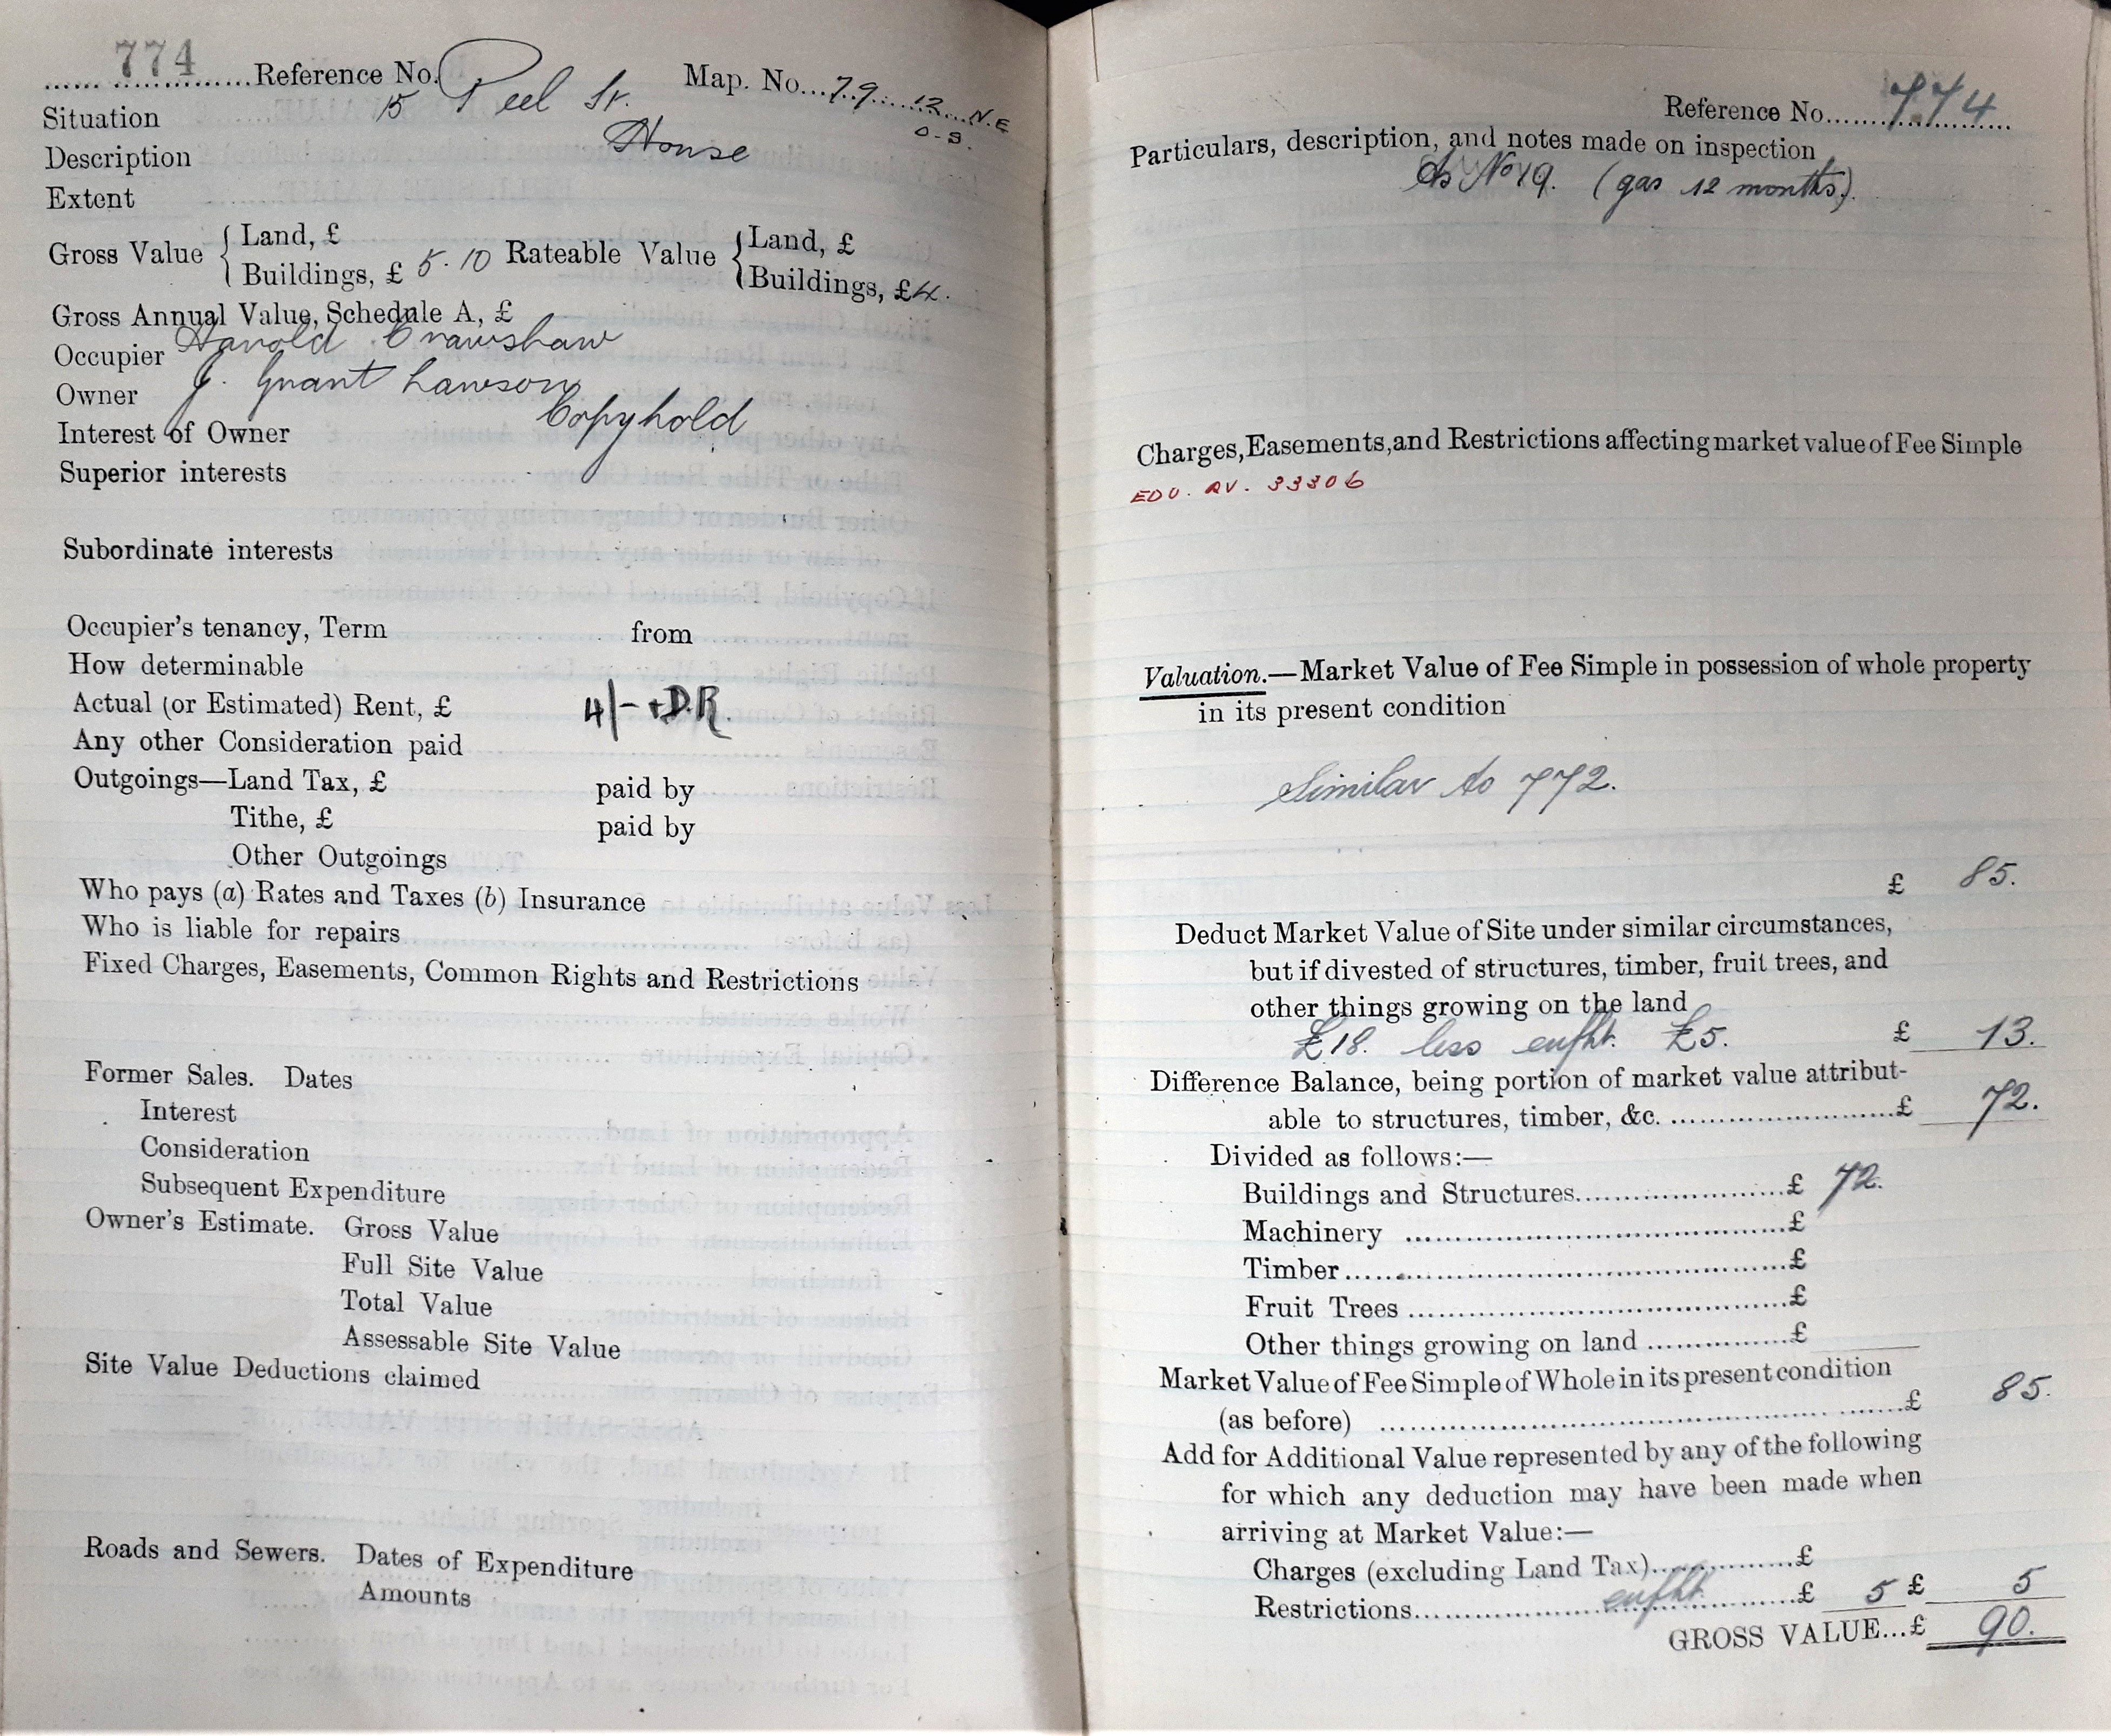 774 Reference No. Map. No. 79 12 N.E
Situation 15 Peel St. O.S.
Description House
Extent
Gross Value { Land, £ Rateable Value { Land, £
Buildings, £ 5.10 Buildings, £4.
Gross Annual Value, Schedule A, £
Occupier Harold Crawshaw
Owner J. Grant Lawson
Interest of Owner Copyhold
Superior interests
Subordinate interests
Occupier's tenancy, Term from
How determinable
Actual (or Estimated) Rent, £ 4/- + D.R.
Any other Consideration paid
Outgoings—Land Tax, £ paid by
Tithe, £ paid by
Other Outgoings
Who pays (a) Rates and Taxes (b) Insurance
Who is liable for repairs
Fixed Charges, Easements, Common Rights and Restrictions
Former Sales. Dates
Interest
Consideration
Subsequent Expenditure
Owner's Estimate. Gross Value
Full Site Value
Total Value
Assessable Site Value
Site Value Deductions claimed
Roads and Sewers. Dates of Expenditure
Amounts
Reference No. 774
Particulars, description, and notes made on inspection
As No 19. (gas 12 months).
Charges, Easements, and Restrictions affecting market value of Fee Simple
EDU. RV. 33306
Valuation.—Market Value of Fee Simple in possession of whole property
in its present condition
Similar to 772.
£ 85.
Deduct Market Value of Site under similar circumstances,
but if divested of structures, timber, fruit trees, and
other things growing on the land
£18. less enfht. £5. £ 13.
Difference Balance, being portion of market value attribut-
able to structures, timber, &c. £ 72.
Divided as follows:—
Buildings and Structures £ 72.
Machinery £
Timber £
Fruit Trees £
Other things growing on land £
Market Value of Fee Simple of Whole in its present condition
(as before) £ 85.
Add for Additional Value represented by any of the following
for which any deduction may have been made when
arriving at Market Value:—
Charges (excluding Land Tax) £
Restrictions enfht. £ 5 £ 5
GROSS VALUE... £ 90.